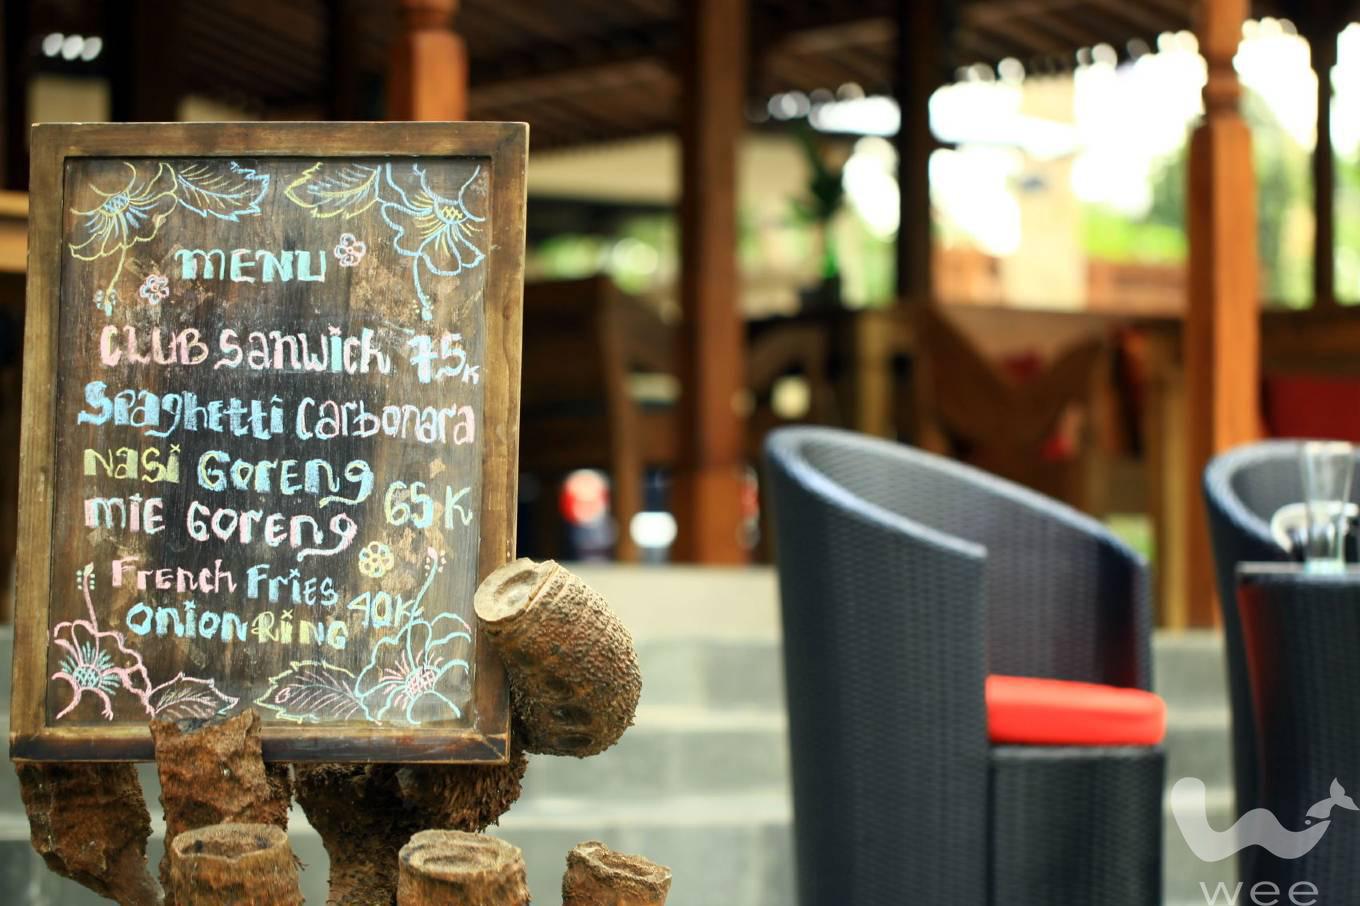 MENU
CLUB Sanwich 75K
Spaghetti Carbonara
Nasi GORENG
MIE GORENG 65K
FRENCH FRIES
ONION RING 40K
wee